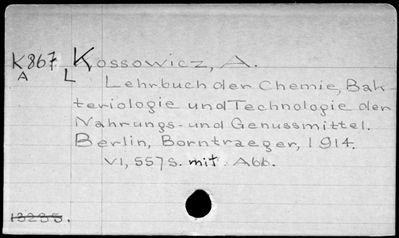 K867 Kossowicz, A.
A L Lehrbuch der Chemie, Bak-
teriologie und Technologie der
Nahrungs- und Genussmittel.
Berlin, Borntraeger, 1914.
VI, 557 S. mit. Abb.